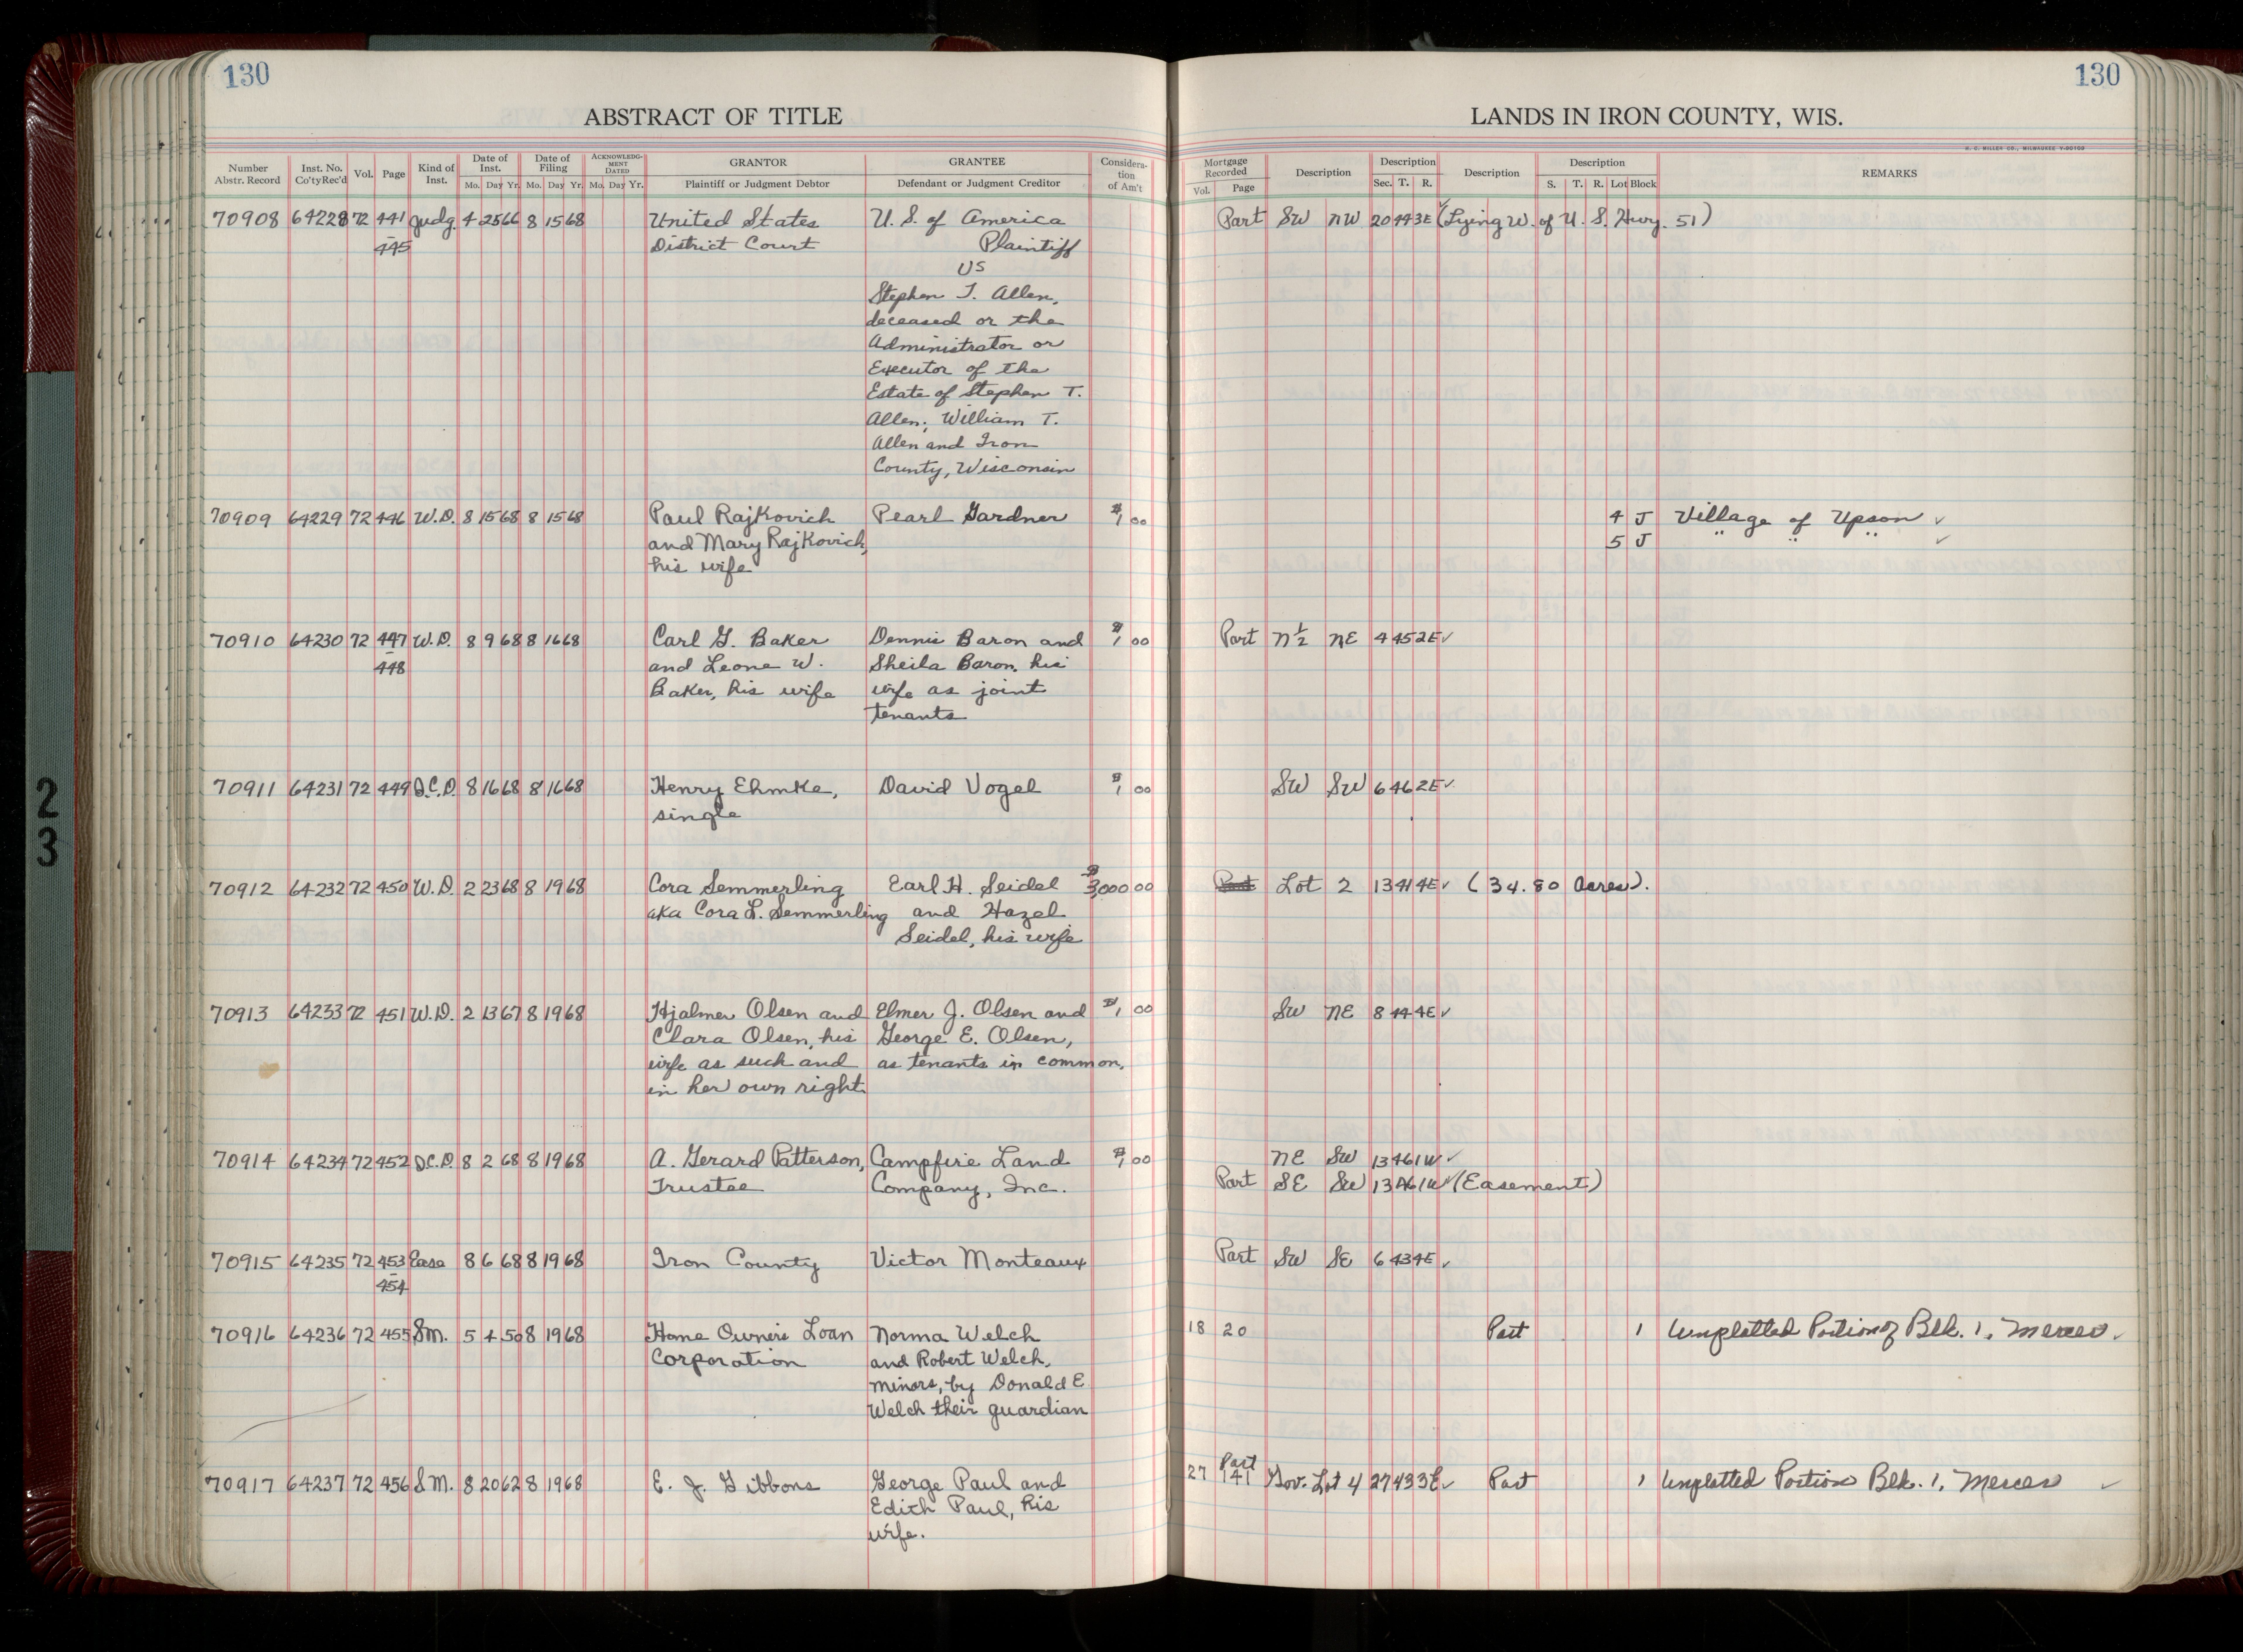 130
130
ABSTRACT OF TITLE
LANDS IN IRON COUNTY, WIS.
H. C. MILLER CO., MILWAUKEE
Number Abstr. Record | Inst. No. Co'ty Rec'd | Vol. | Page | Kind of Inst. | Date of Inst. Mo. Day Yr. | Date of Filing Mo. Day Yr. | ACKNOWLEDGMENT DATED Mo. Day Yr. | GRANTOR Plaintiff or Judgment Debtor | GRANTEE Defendant or Judgment Creditor | Consideration of Am't
Mortgage Recorded Vol. Page | Description | Description Sec. T. R. | Description | Description S. T. R. Lot Block | REMARKS
70908 64228 72 441 Judg. 4 25 66 8 15 68 United States U. S. of America Part SW NW 20 44 3E (Lying W. of U. S. Hwy. 51)
445 District Court Plaintiff
VS
Stephen T. Allen,
deceased or the
Administrator or
Executor of the
Estate of Stephen T.
Allen; William T.
Allen and Iron
County, Wisconsin
70909 64229 72 446 W.D. 8 15 68 8 15 68 Paul Rajkovich Pearl Gardner $1 00 4 J Village of Upson ✓
and Mary Rajkovich, 5 J " " " ✓
his wife
70910 64230 72 447 W.D. 8 9 68 8 16 68 Carl G. Baker Dennis Baron and $1 00 Part N½ NE 4 45 2E ✓
448 and Leone W. Sheila Baron, his
Baker, his wife wife as joint
tenants
70911 64231 72 449 Q.C.D. 8 16 68 8 16 68 Henry Ehmke, David Vogel $1 00 SW SW 6 46 2E ✓
single
70912 64232 72 450 W.D. 2 23 68 8 19 68 Cora Semmerling Earl H. Seidel $3,000 00 Part Lot 2 13 41 4E ✓ (34.80 Acres).
aka Cora L. Semmerling and Hazel
Seidel, his wife
70913 64233 72 451 W.D. 2 13 67 8 19 68 Hjalmer Olsen and Elmer J. Olsen and $1 00 SW NE 8 44 4E ✓
Clara Olsen, his George E. Olsen,
wife as such and as tenants in common.
in her own right
70914 64234 72 452 Q.C.D. 8 2 68 8 19 68 A. Gerard Patterson, Campfire Land $1 00 NE SW 13 46 1W ✓
Trustee Company, Inc. Part SE SW 13 46 1W ✓ (Easement)
70915 64235 72 453 Ease 8 6 68 8 19 68 Iron County Victor Monteaux Part SW SE 6 43 4E ✓
454
70916 64236 72 455 S.M. 5 4 50 8 19 68 Home Owner's Loan Norma Welch 18 20 Part 1 Unplatted Portion of Blk. 1, Mercer ✓
Corporation and Robert Welch,
minors, by Donald E.
Welch their guardian
70917 64237 72 456 S.M. 8 20 62 8 19 68 E. J. Gibbons George Paul and 27 141 Part Gov. Lot 4 27 43 3E ✓ Part 1 Unplatted Portion Blk. 1, Mercer ✓
Edith Paul, his
wife.
2
3